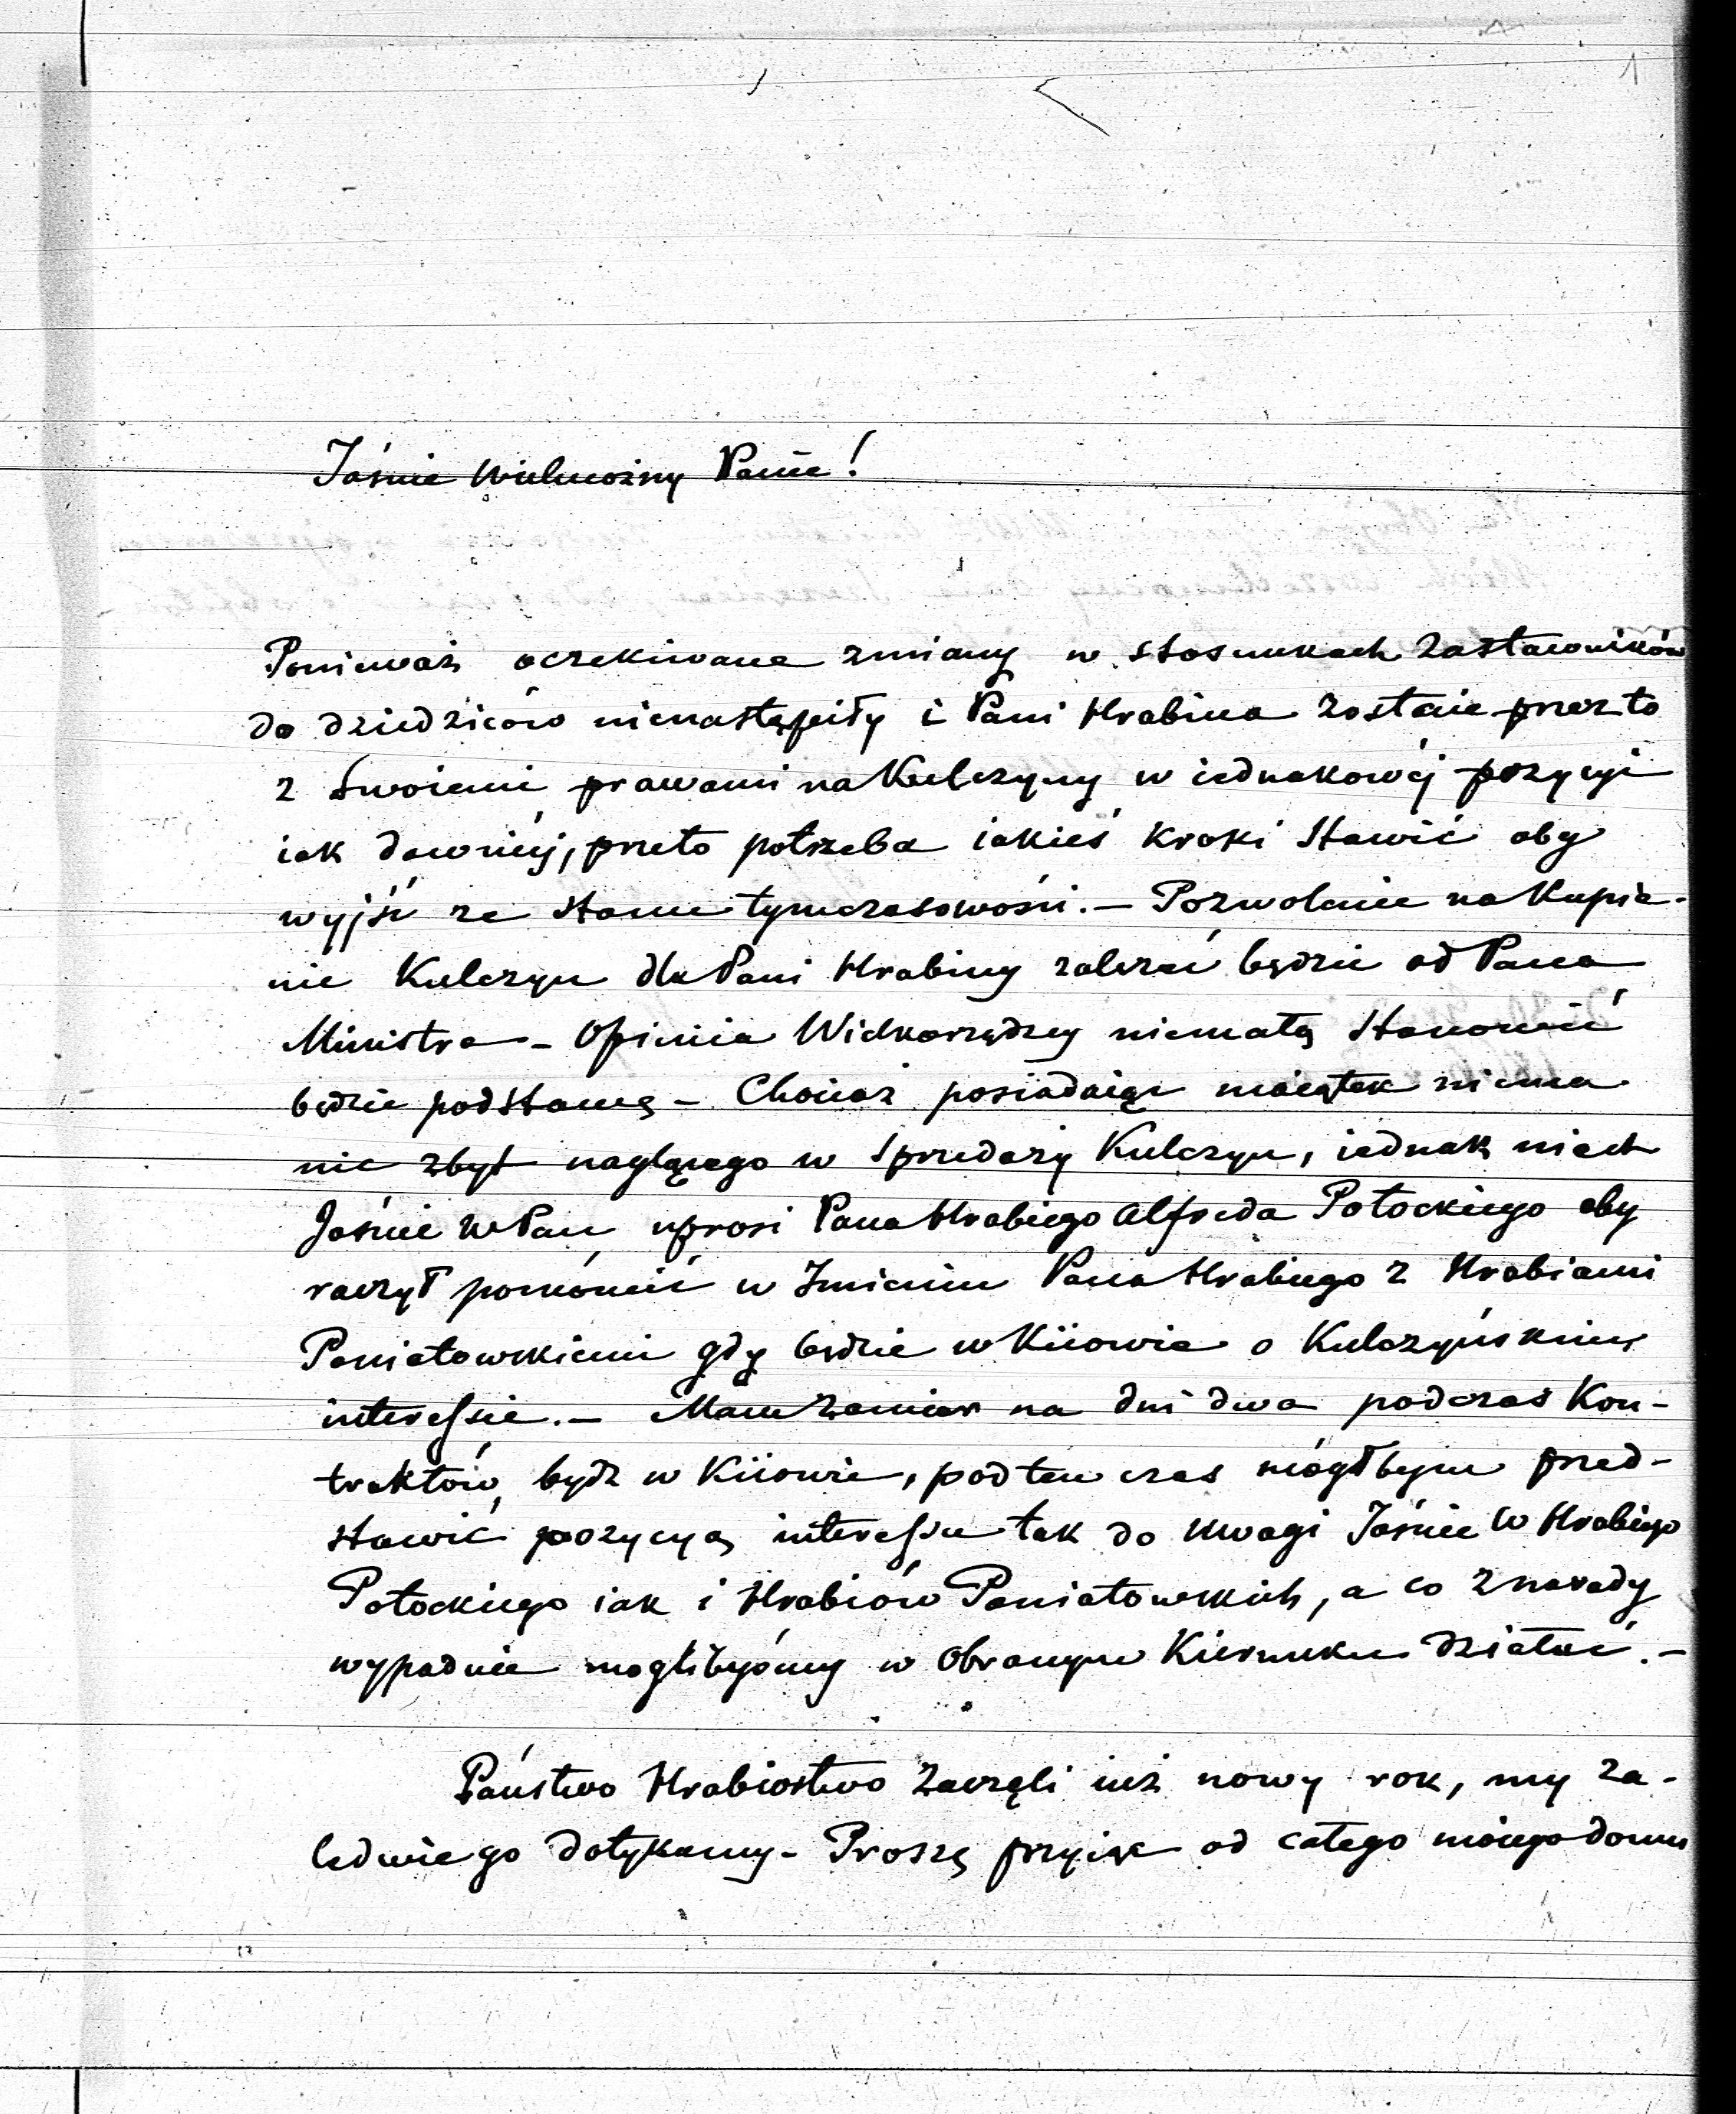 1
Jaśnie Wielmożny Panie!
Ponieważ oczekiwane zmiany w stosunkach Zastawników
do dziedziców nienastąpiły i Pani Hrabina zostaie przez to
z swoiemi prawami na Kulczyny w iednakowéj pozycyi
iak dawniéj, przeto potrzeba iakieś kroki stawić aby
wyjść ze stanu tymczasowości. – Pozwolenie na kupie-
nie Kulczyn dla Pani Hrabiny zależeć będzie od Pana
Ministra – Opinia Wielkorządzcy niemałą stanowić
będzie podstawę – Chociaż posiadaiąc maiątek niema
nic zbyt naglącego w sprzedaży Kulczyn, iednak niech
Jaśnie WPan uprosi Pana Hrabiego Alfreda Potockiego aby
raczył pomówić w Imieniu Pana Hrabiego z Hrabiami
Poniatowskiemi gdy będzie w Kiiowie o Kulczyńskim
interessie. – Mam zamiar na dni dwa podczas Kon-
traktów bydz w Kiiowie, pod ten czas mógłbym przed-
stawić pozycyą interessu tak do uwagi Jaśnie W Hrabiego
Potockiego iak i Hrabiów Poniatowskich, a co z narady
wypadnie moglibyśmy w obranym Kierunku działać. –
Państwo Hrabiostwo zaczęli iuż nowy rok, my za-
ledwie go dotykamy – Proszę przyiąć od całego moiego domu